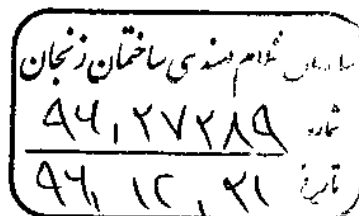 سازمان نظام مهندسی ساختمان زنجان
شماره ۹۶,۲۷۲۸۹
تاریخ ۹۶, ۱۲, ۲۱